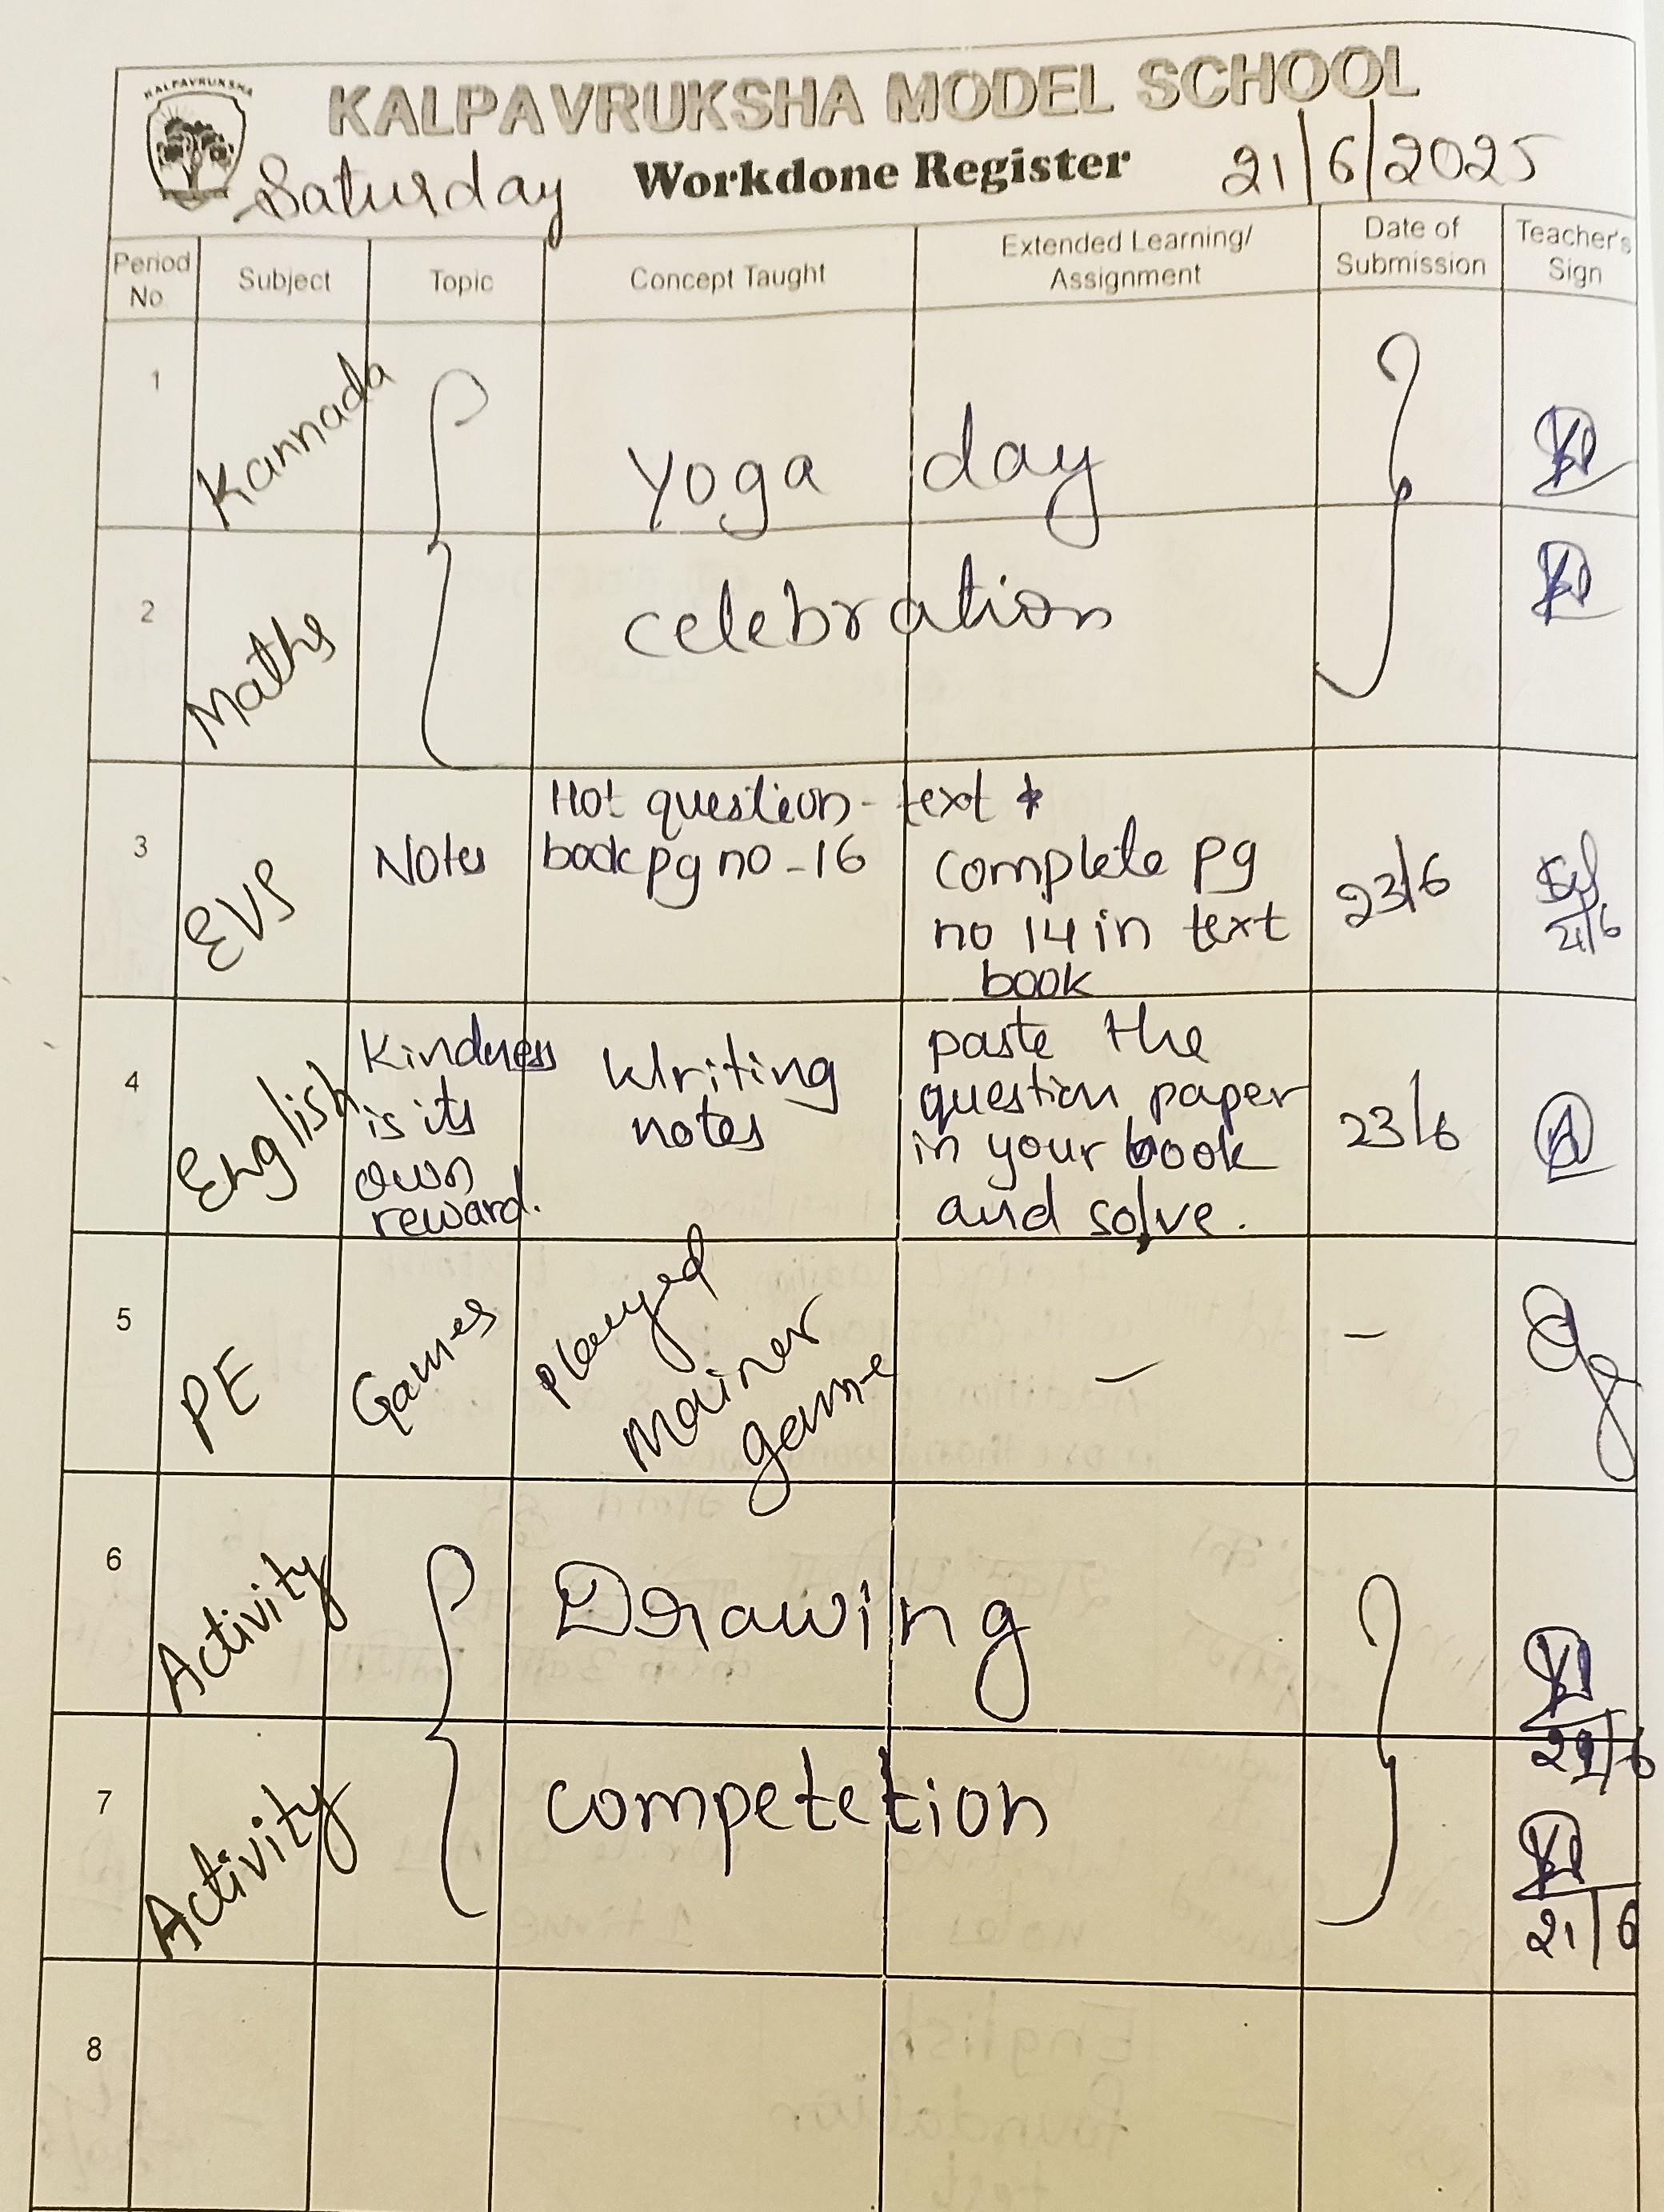 KALPAVRUKSHA
KALPAVRUKSHA MODEL SCHOOL
Saturday Workdone Register 21/6/2025
Period No. Subject Topic Concept Taught Extended Learning/ Assignment Date of Submission Teacher's Sign
1 Kannada Yoga day
2 Maths celebration
3 EVS Notes Hot question - text *
book pg no - 16
complete pg
no 14 in text
book
23/6
21/6
4 English Kindness
is its
own
reward.
Writing
notes
paste the
question paper
in your book
and solve.
23/6
5 PE Games played
mainer
game
— —
6 Activity Drawing
21/6
7 Activity competetion
21/6
8